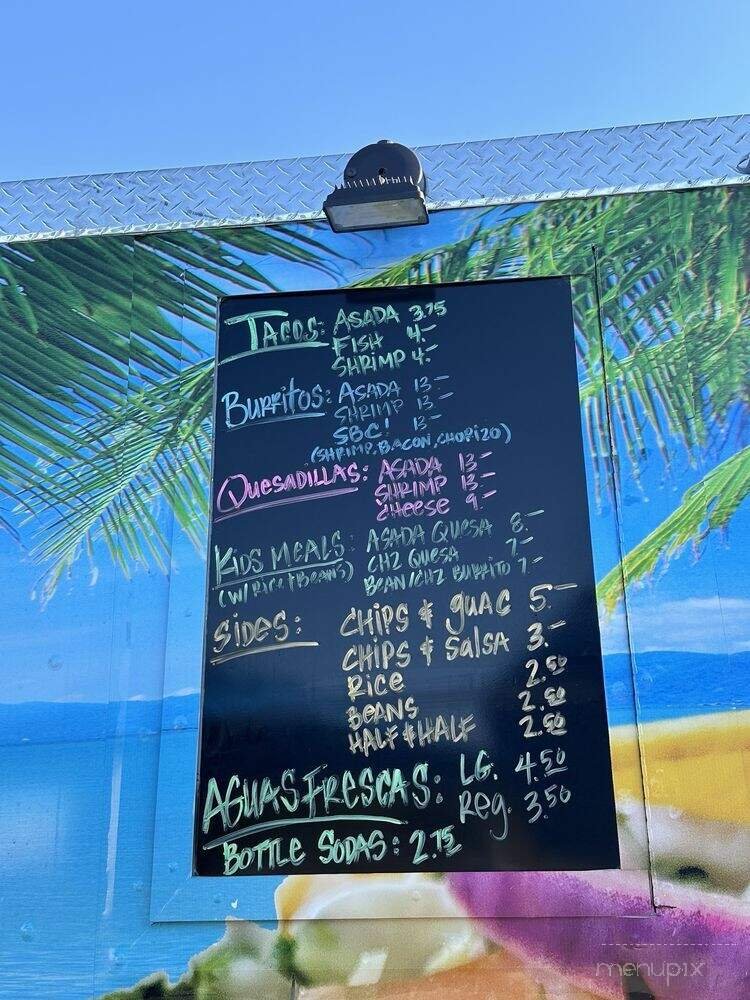 TACOS: ASADA 3.75
FISH 4.-
SHRIMP 4.-
BURRITOS: ASADA 13.-
SHRIMP 13.-
SBC! 13.-
(SHRIMP, BACON, CHORIZO)
QUESADILLAS: ASADA 13.-
SHRIMP 13.-
CHEESE 9.-
KIDS MEALS: ASADA QUESA 8.-
(W/ RICE & BEANS) CHZ QUESA 7.-
BEAN/CHZ BURRITO 7.-
SIDES: CHIPS & GUAC 5.-
CHIPS & SALSA 3.-
RICE 2.50
BEANS 2.50
HALF & HALF 2.50
AGUAS FRESCAS: LG. 4.50
REG. 3.50
BOTTLE SODAS: 2.75
menupix